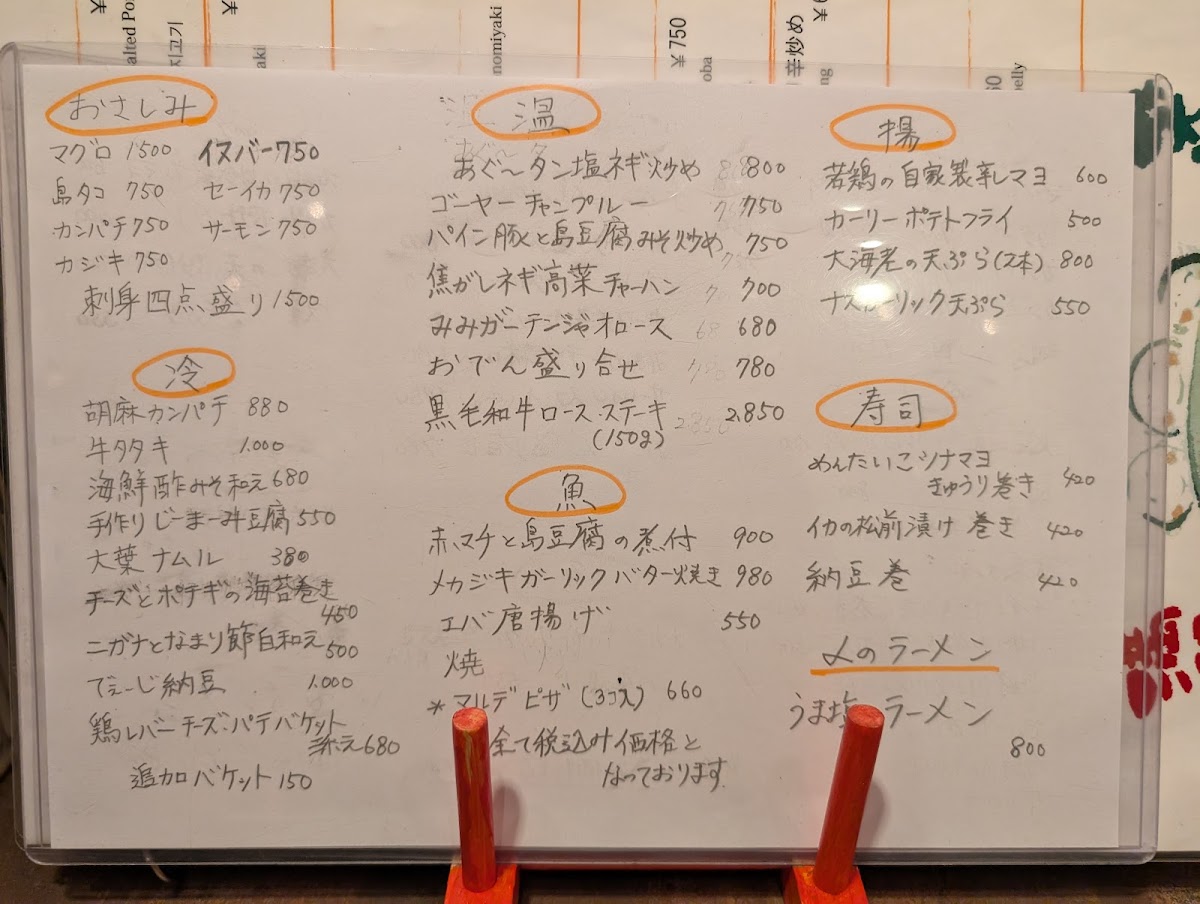 おさしみ
マグロ 1500 イヌバー 750
島タコ 750 セーイカ 750
カンパチ 750 サーモン 750
カジキ 750
刺身四点盛り 1500
冷
胡麻カンパチ 880
牛タタキ 1.000
海鮮酢みそ和え 680
手作りじーまーみ豆腐 550
大葉ナムル 380
チーズとポテギの海苔巻き
450
ニガナとなまり節白和え 500
でぇーじ納豆 1.000
鶏レバーチーズパテバケット
添え 680
追加バケット 150
温
あぐ〜タン塩ネギ炒め 800
ゴーヤーチャンプルー 750
パイン豚と島豆腐みそ炒め 750
焦がしネギ高菜チャーハン 700
みみガーチンジャオロース 680
おでん盛り合せ 780
黒毛和牛ロース・ステーキ 2.850
(150g)
魚
赤マチと島豆腐の煮付 900
メカジキガーリックバター焼き 980
エバ唐揚げ 550
焼
*マルデピザ (3コ入) 660
全て税込み価格と
なっております
揚
若鶏の自家製辛しマヨ 600
カーリーポテトフライ 500
大海老の天ぷら(2本) 800
ナスガーリック天ぷら 550
寿司
めんたいこツナマヨ
きゅうり巻き 420
イカの松前漬け巻き 420
納豆巻 420
〆のラーメン
うま塩ラーメン
800
¥750
oba
nomiyaki
aki
alted Por
지고기
辛炒め
ng
elly